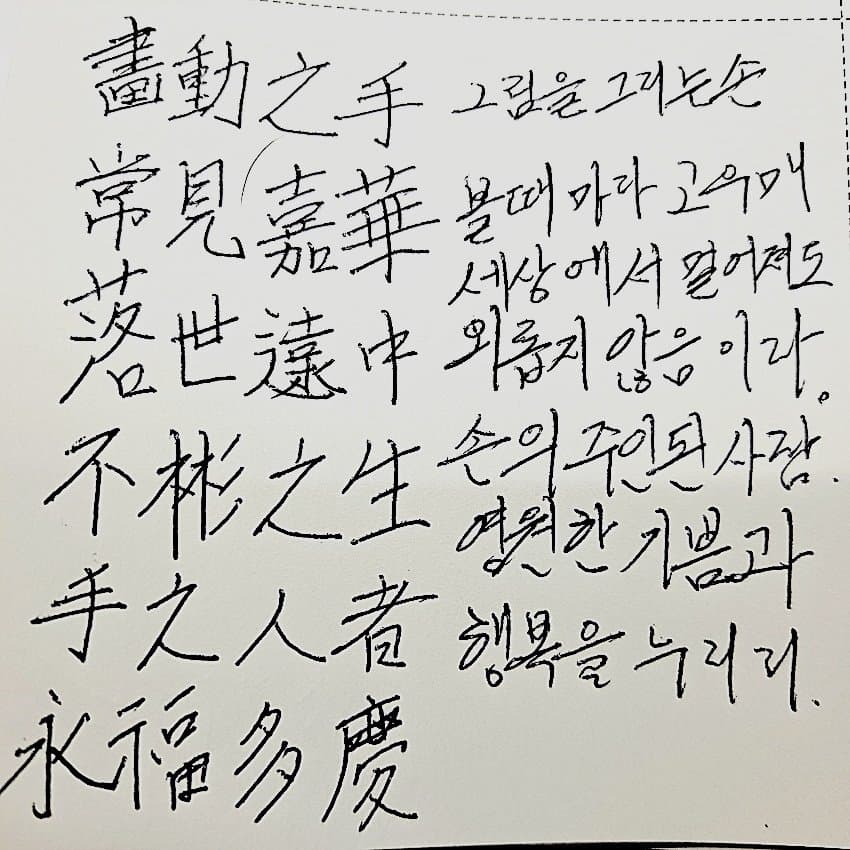 畵動之手 그림을 그리는 손
常見嘉華 볼때 마다 고우매
落世遠中 세상에서 멀어져도
不彬之生 외롭지 않음이라.
手之人者 손의 주인된 사람.
永福多慶 영원한 기쁨과
행복을 누리리.